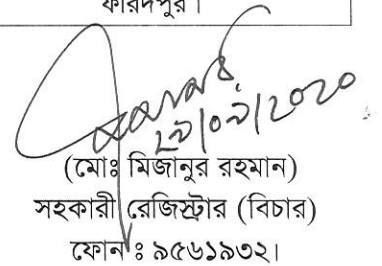 ফরিদপুর।
(মোঃ মিজানুর রহমান)
সহকারী রেজিস্ট্রার (বিচার)
ফোন ঃ ৯৫৬১৯৩২।